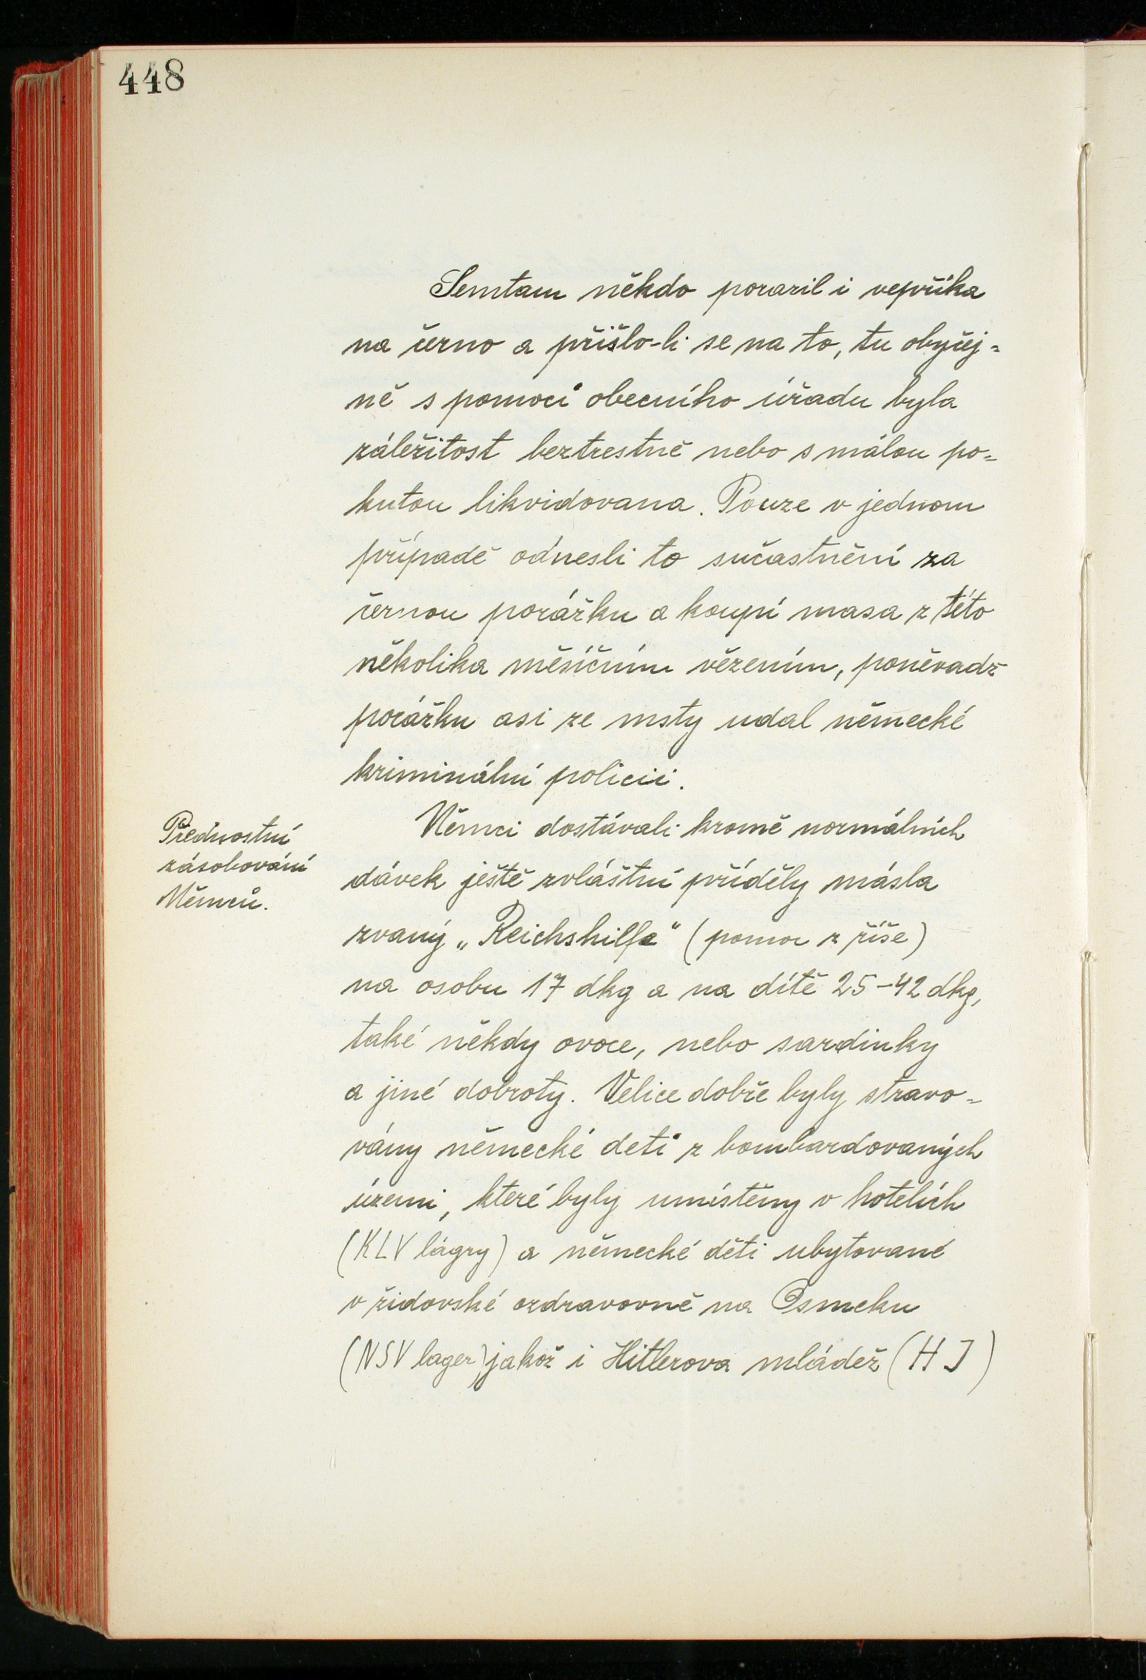 448
Semtam někdo porazil i vepříka
na černo a přišlo-li se na to, tu obyčej=
ně s pomocí obecního úřadu byla
záležitost beztrestně nebo s málou po=
kutou likvidovana. Pouze v jednom
případě odnesli to sučastnění za
černou porážku a koupí masa z této
několika měsíčním vězením, poněvadž
porážku asi ze msty udal německé
kriminální policii.
Přednostní
zásobování
Němců.
Němci dostávali kromě normálních
dávek ještě zvláštní příděly másla
zvaný „Reichshilfe" (pomoc z říše)
na osobu 17 dkg a na dítě 25-42 dkg,
také někdy ovoce, nebo sardinky
a jiné dobroty. Velice dobře byly stravo=
vány německé deti z bombardovaných
územi, které byly umístěny v hotelích
(KLV lágry) a německé děti ubytované
v židovské ozdravovně na Osmeku
(NSV lager) jakož i Hitlerova mládež (HJ)